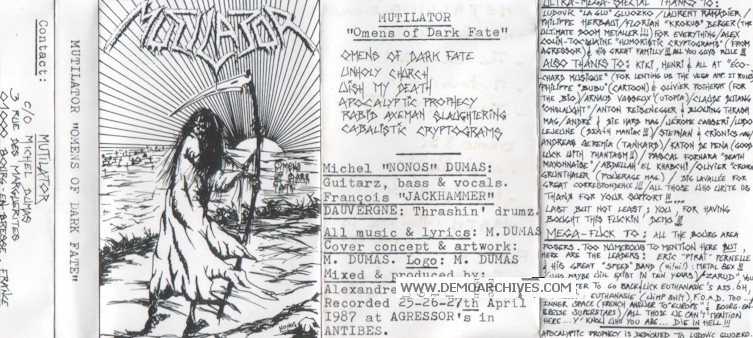 Contact:
MUTILATOR
c/o MICHEL DUMAS
3 RUE DES MARGUERITES
01000 BOURG-EN-BRESSE FRANCE
MUTILATOR "OMENS OF DARK FATE"
MUTILATOR
OMENS
OF DARK
FATE
NONOS
MUTILATOR
"Omens of Dark Fate"
OMENS OF DARK FATE
UNHOLY CHURCH
WISH MY DEATH
APOCALYPTIC PROPHECY
RABID AXEMAN SLAUGHTERING
CABALISTIC CRYPTOGRAMS
Michel "NONOS" DUMAS:
Guitarz, bass & vocals.
François "JACKHAMMER"
DAUVERGNE: Thrashin' drumz.
All music & lyrics: M.DUMAS
Cover concept & artwork:
M. DUMAS. Logo: M. DUMAS
Mixed & produced by:
Alexandre
Recorded 25-26-27th April
1987 at AGRESSOR's in
ANTIBES.
WWW.DEMOARCHIVES.COM
ULTRA-MEGA-SPECIAL THANKS TO:
LUDOVIC "LA GLU" GLUOZKO/LAURENT RAMADIER/
PHILIPPE HERBAUT/FLORIAN "KROKUS" BERGER (THE
ULTIMATE DOOM METALLER!!!) FOR EVERYTHING/ALEX
COLIN-TOCQUAINE "HUMORISTIC CRYPTOGRAMS" (FROM
AGRESSOR) & HIS GREAT FAMILY!! ALL YOU GUYS RULE!!
ALSO THANKS TO: KIKI, HENRI & ALL AT "ECO-
CHARD MUSIQUE" (FOR LENTING US THE VEGA AMP. IT RULES)
PHILIPPE "BUBU" (CARTOON) & OLIVIER POTHERAT (FOR
THE BIO)/ARNAUD VASSEUX (UTOPIA)/CLAUDE
ONSLAUGHT/ANTON REISENEGGER & BLOWING THRASH
MAG/ANDRE & DIE HARD MAG/JEROME CASSERI/LUDO
LEJEUNE (DEATH MANIAC!!)/STEPHAN & CRONICS MAG
ANDREAS GEREMIA (TANKARD)/KATON DE PENA (GOOD
LUCK WITH PHANTASM!!)/PASCAL FORNARA "DEATH
MAYONNAISE"/ABDELLAH EL KHABCH/OLIVIER
GRUNTHALER (POWERAGE MAG)/ LAVALLÉE FOR
GREAT CORRESPONDENCE!!!/ALL THOSE WHO WRITE US
THANX FOR YOUR SUPPORT!!!...
LAST BUT NOT LEAST: YOU, FOR HAVING
BOUGHT THIS FUCKIN' DEMO!!!
MEGA-FUCK TO: ALL THE BOURG AREA
POSERS. TOO NUMEROUS TO MENTION HERE BUT,
HERE ARE THE LEADERS: ERIC "PIRAT" PERNELLE
& HIS GREAT "SPEED" BAND (HIHI!): METAL BED!!
(WHO MAYBE WILL EXIST IN TEN YEARS)/
TER TO GO BACK LICK EUTHANASIE'S ASS. OH,
EUTHANASIE (WIMP SHIT) F.O.A.D. TOO...
INNER SPACE (FRENCH ANSWER TO "EUROPE" & BOURG-EN-
BRESSE SUPERSTARS)/ALL THOSE WE CAN'T MENTION
HERE...Y'KNOW WHO YOU ARE... DIE IN HELL!!!
APOCALYPTIC PROPHECY IS DEDICATED TO LUDOVIC GLUOZKO.